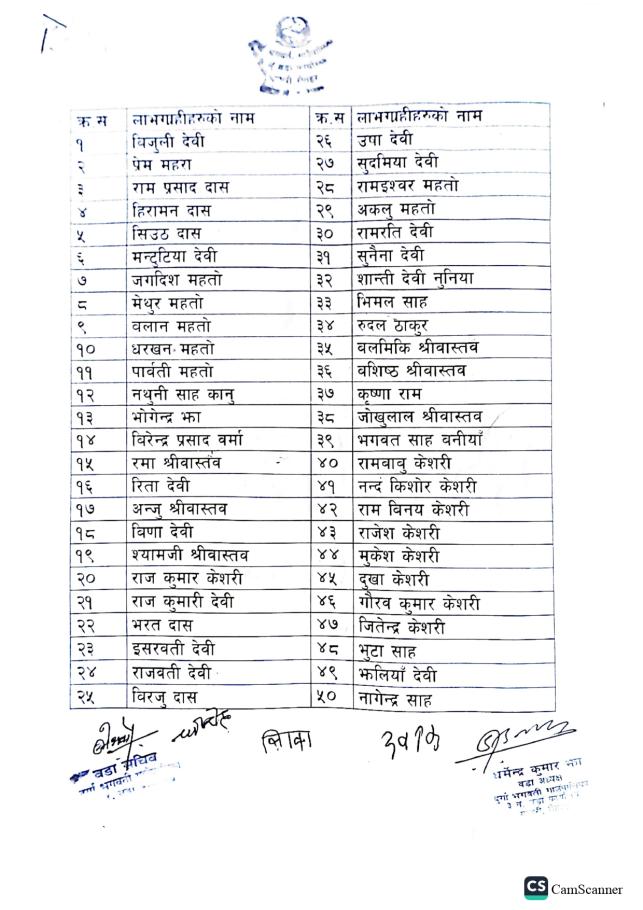 क्र स	लाभग्राहीहरुको नाम	क्र.स	लाभग्राहीहरुको नाम
१	बिजुली देवी	२६	उषा देवी
२	प्रेम महरा	२७	सुदमिया देवी
३	राम प्रसाद दास	२८	रामइश्वर महतो
४	हिरामन दास	२९	अकलु महतो
५	सिउठ दास	३०	रामरति देवी
६	मन्टुटिया देवी	३१	सुनैना देवी
७	जगदिश महतो	३२	शान्ती देवी नुनिया
८	मेथुर महतो	३३	भिमल साह
९	वलान महतो	३४	रुदल ठाकुर
१०	धरखन महतो	३५	वलमिकि श्रीवास्तव
११	पार्वती महतो	३६	वशिष्ठ श्रीवास्तव
१२	नथुनी साह कानु	३७	कृष्णा राम
१३	भोगेन्द्र झा	३८	जोखुलाल श्रीवास्तव
१४	बिरेन्द्र प्रसाद वर्मा	३९	भगवत साह वनीयाँ
१५	रमा श्रीवास्तव	४०	रामवावु केशरी
१६	रिता देवी	४१	नन्द किशोर केशरी
१७	अन्जु श्रीवास्तव	४२	राम विनय केशरी
१८	विणा देवी	४३	राजेश केशरी
१९	श्यामजी श्रीवास्तव	४४	मुकेश केशरी
२०	राज कुमार केशरी	४५	दुखा केशरी
२१	राज कुमारी देवी	४६	गौरव कुमार केशरी
२२	भरत दास	४७	जितेन्द्र केशरी
२३	इसरवती देवी	४८	भुटा साह
२४	राजवती देवी	४९	झलियाँ देवी
२५	विरजु दास	५०	नागेन्द्र साह
वडा सचिव
धर्मेन्द्र कुमार झा
वडा अध्यक्ष
दुर्गा भगवती गाउँपालिका
CS CamScanner